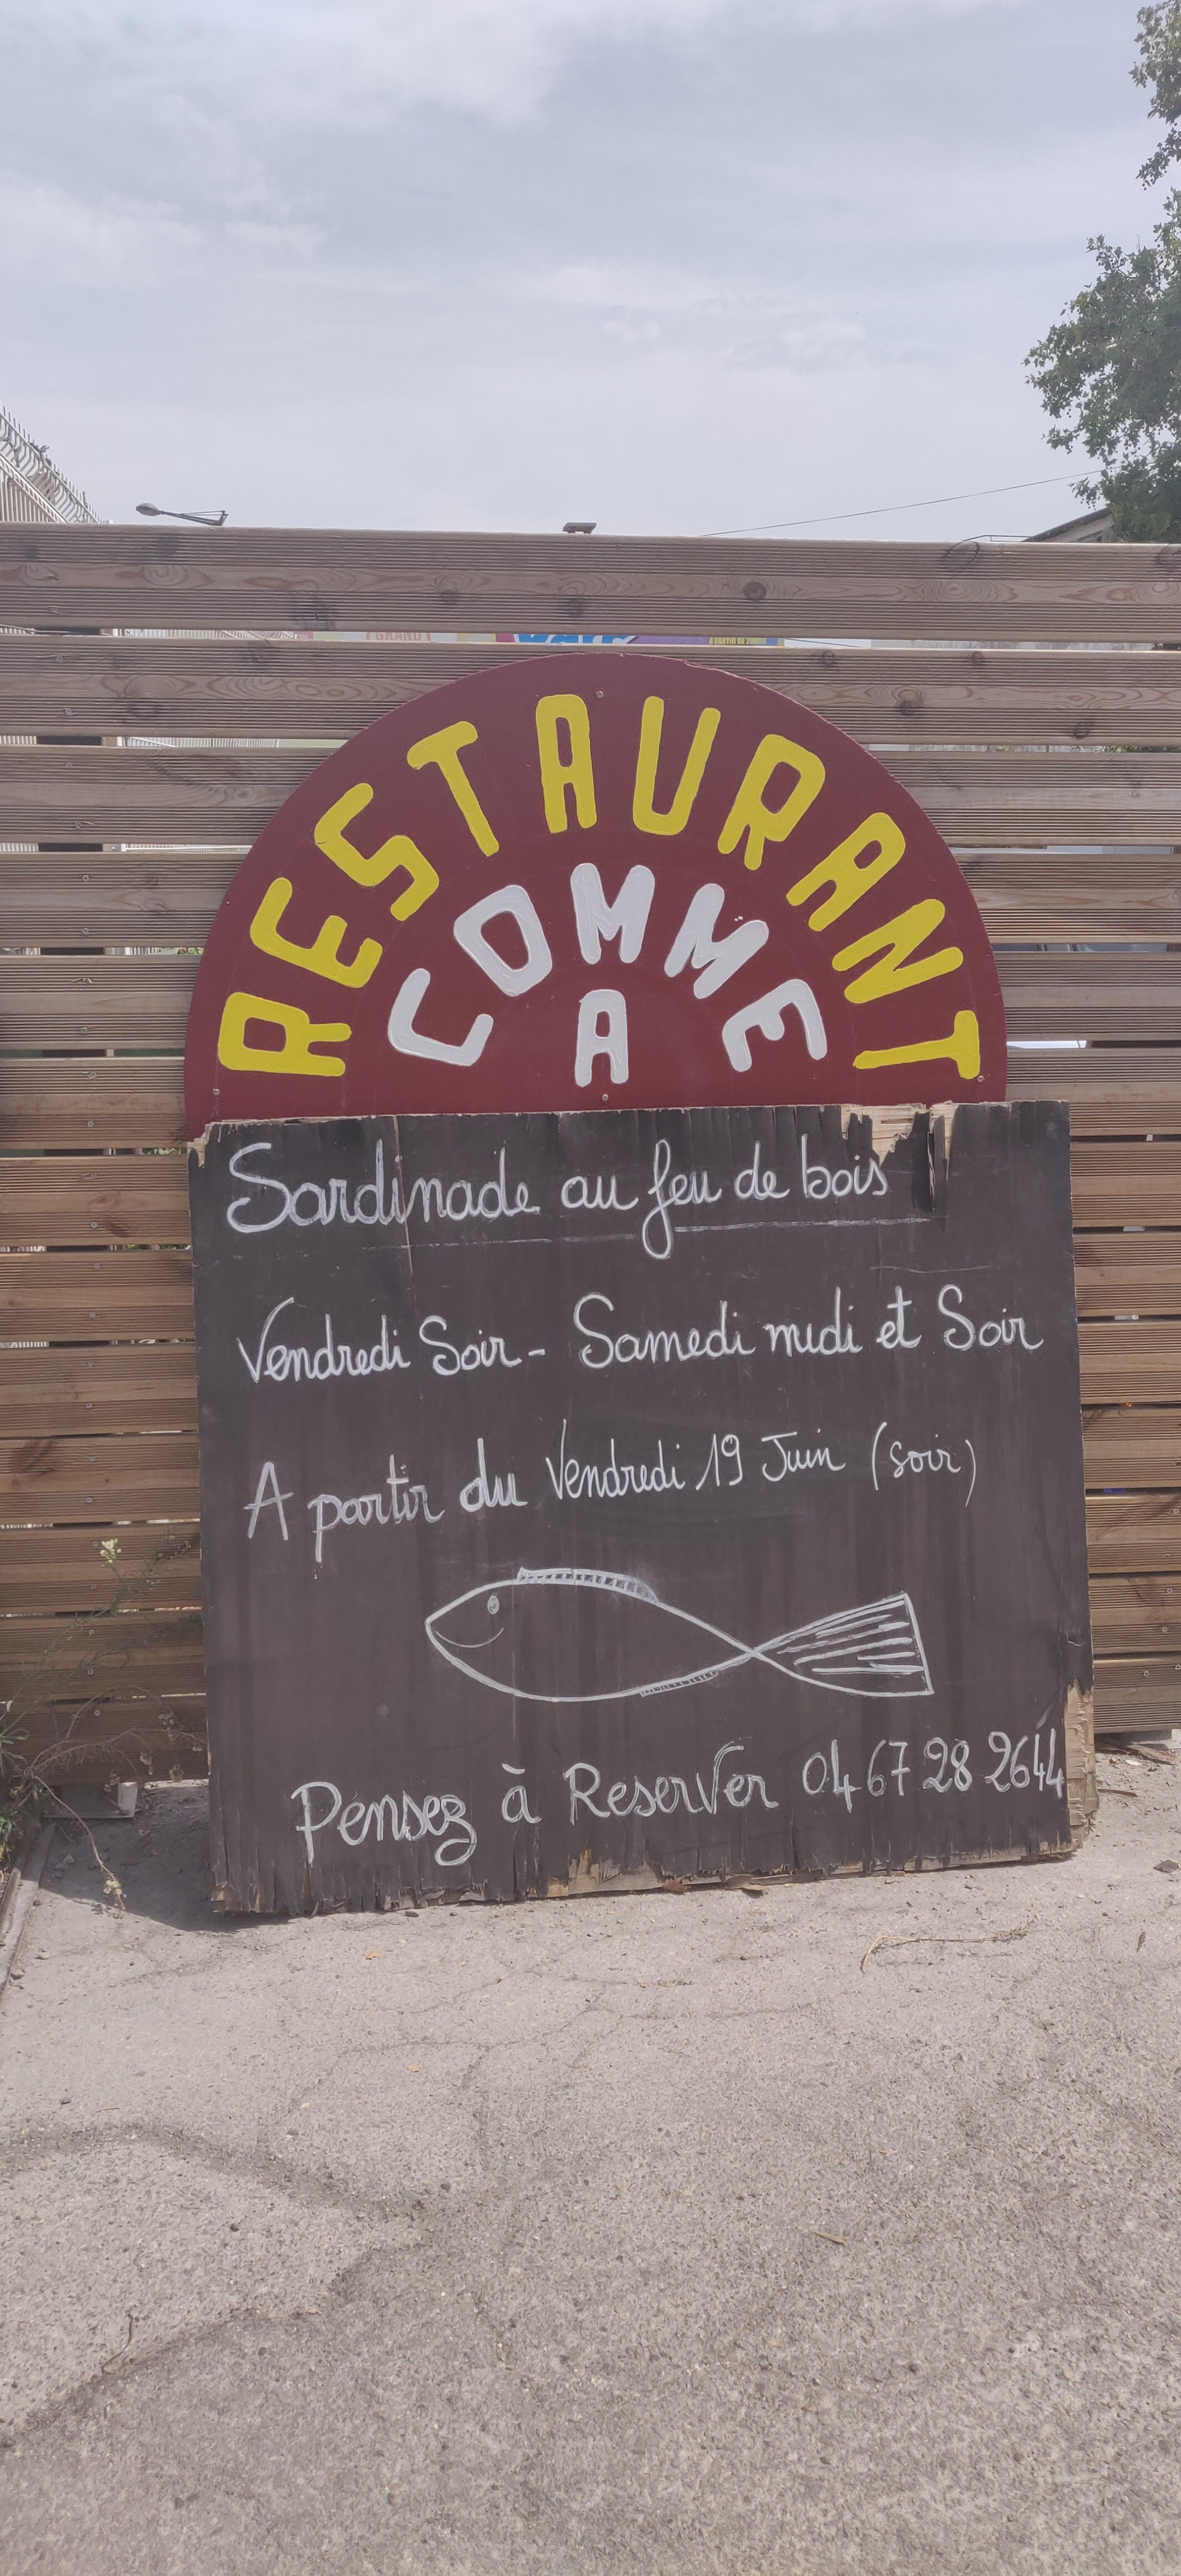 GRAND
RESTAURANT
COMME
A
Sardinade au feu de bois
Vendredi Soir - Samedi midi et Soir
A partir du Vendredi 19 Juin (soir)
Pensez à Reserver 04 67 28 2644